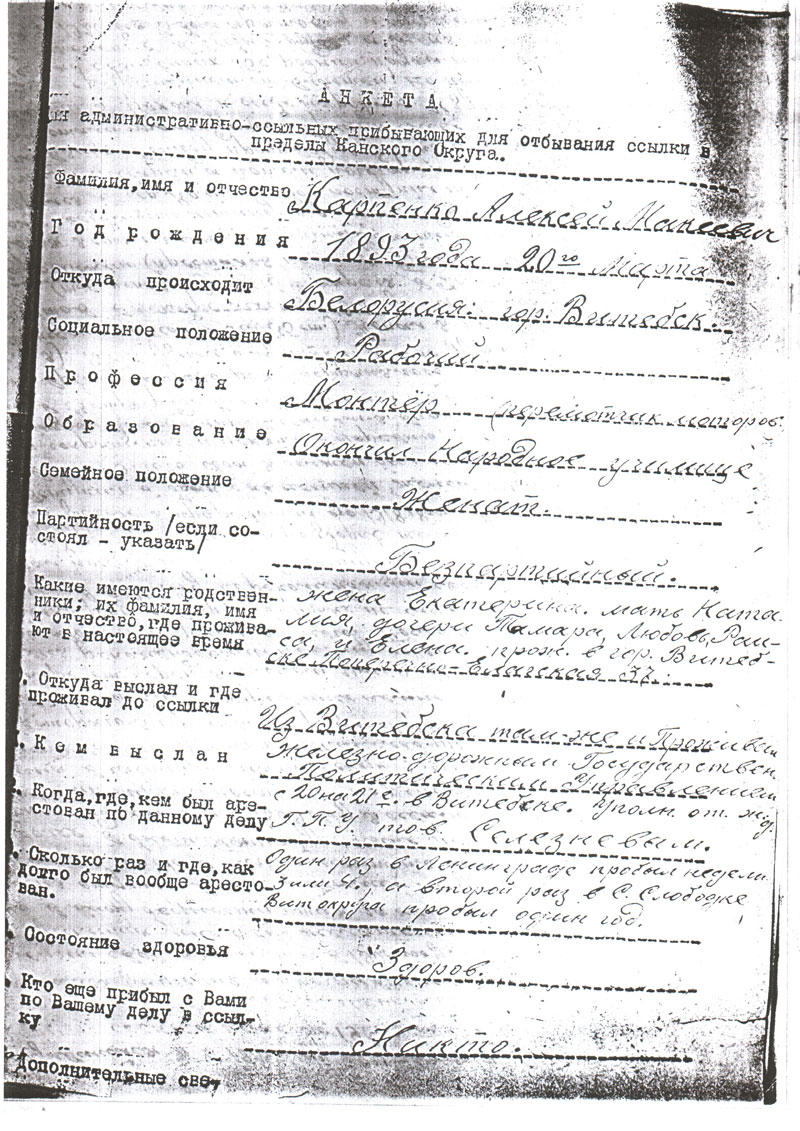 АНКЕТА
ля административно-ссыльных прибывающих для отбывания ссылки в
пределы Канского Округа.
Фамилия, имя и отчество Карпенко Алексей Макеевич
Год рождения 1893 года 20го Марта
Откуда происходит Белорусия: гор. Витебск.
Социальное положение Рабочий
Профессия Монтёр (перемотчик моторов.
Образование Окончил Народное училище
Семейное положение Женат.
Партийность /если со-
стоял - указать/ Безпартийный.
Какие имеются родствен- жена Екатерина. мать Ната-
ники; их фамилия, имя лия, дочери Тамара, Любовь, Раи-
и отчество, где прожива- са, и Елена. прож. в гор. Витеб-
ют в настоящее время ске 37.
. Откуда выслан и где
проживал до ссылки Из Витебска там-же и Проживал
. Кем выслан железно-дорожным Государствен.
Политическим Управлением
. Когда, где, кем был аре- с 20 на 21 в Витебске. Уполн. от. ж.д.
стован по данному делу Г.П.У. тов. Селезневым.
. Сколько раз и где, как Один раз в Ленинграде пробыл недели
долго был вообще аресто- 3 или 4., а второй раз в С. Слободке
ван. Вит округа пробыл один год.
. Состояние здоровья Здоров.
. Кто еще прибыл с Вами
по Вашему делу в ссыл-
ку Никто.
Дополнительные све-